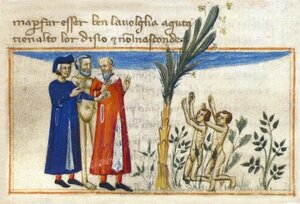 ma p far esser ben la volglia aguta
tien alto lor disio e nol nasconde